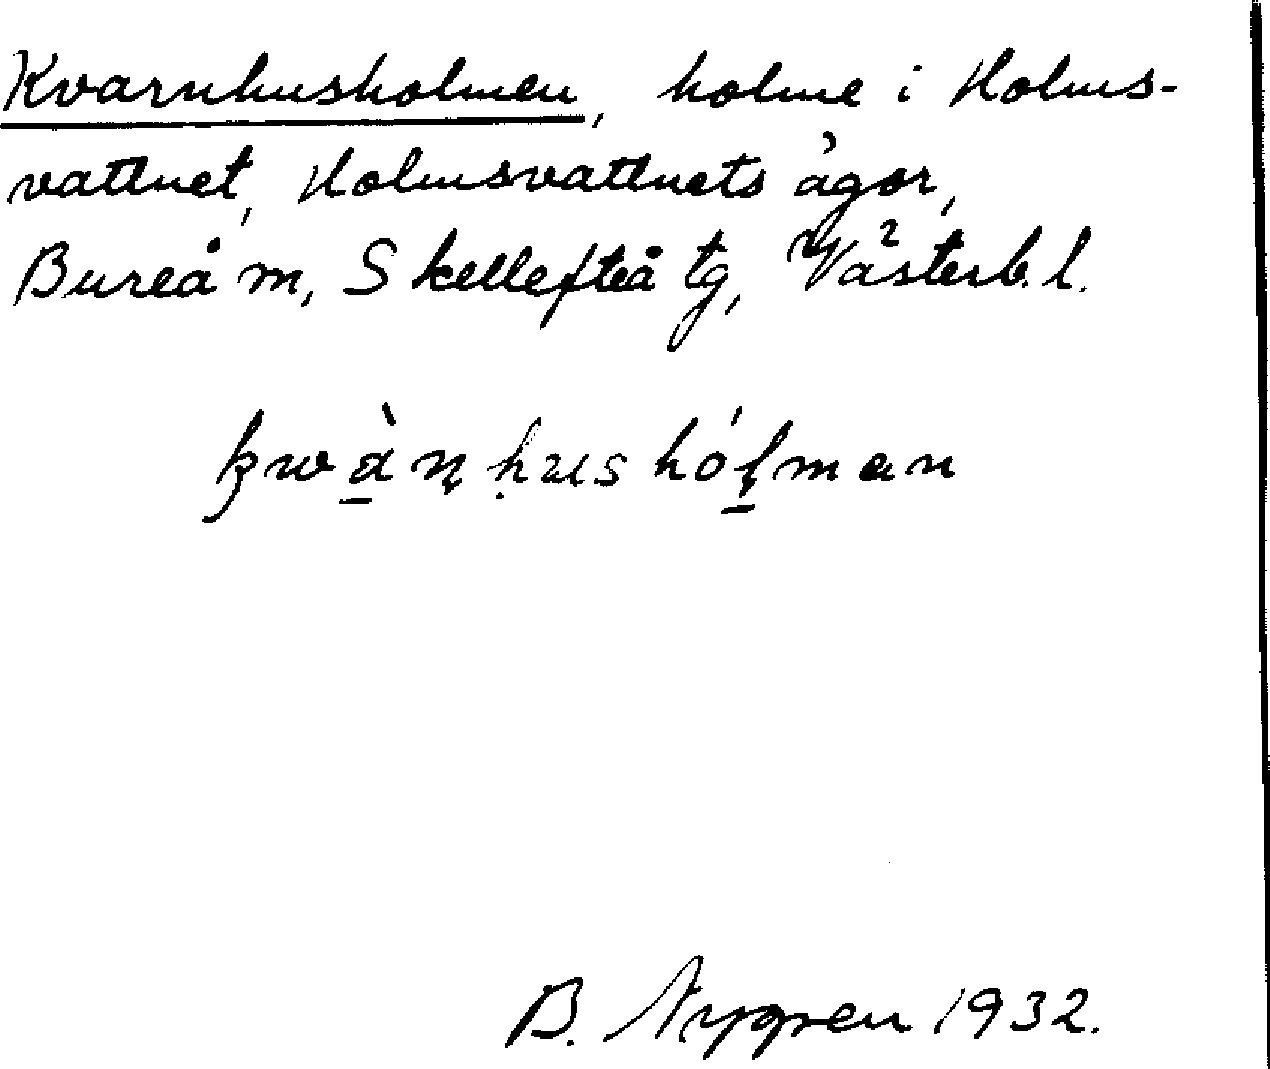 Kvarnhusholmen, holme i Holms-
vattnet, Holmsvattnets ägor,
Bureå m, Skellefteå tg, Västerb. l.
B. Nygren 1932.